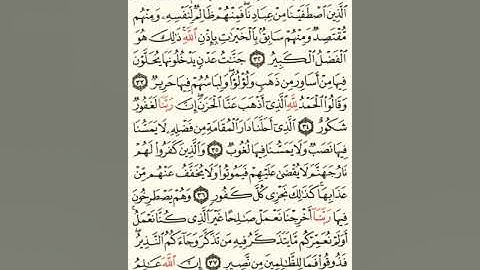 الَّذِينَ اصْطَفَيْنَا مِنْ عِبَادِنَا فَمِنْهُمْ ظَالِمٌ لِّنَفْسِهِ وَمِنْهُم
مُّقْتَصِدٌ وَمِنْهُمْ سَابِقٌ بِالْخَيْرَاتِ بِإِذْنِ اللَّهِ ذَٰلِكَ هُوَ
الْفَضْلُ الْكَبِيرُ ٣٢ جَنَّاتُ عَدْنٍ يَدْخُلُونَهَا يُحَلَّوْنَ
فِيهَا مِنْ أَسَاوِرَ مِن ذَهَبٍ وَلُؤْلُؤًا وَلِبَاسُهُمْ فِيهَا حَرِيرٌ ٣٣
وَقَالُوا الْحَمْدُ لِلَّهِ الَّذِي أَذْهَبَ عَنَّا الْحَزَنَ إِنَّ رَبَّنَا لَغَفُورٌ
شَكُورٌ ٣٤ الَّذِي أَحَلَّنَا دَارَ الْمُقَامَةِ مِن فَضْلِهِ لَا يَمَسُّنَا
فِيهَا نَصَبٌ وَلَا يَمَسُّنَا فِيهَا لُغُوبٌ ٣٥ وَالَّذِينَ كَفَرُوا لَهُمْ
نَارُ جَهَنَّمَ لَا يُقْضَىٰ عَلَيْهِمْ فَيَمُوتُوا وَلَا يُخَفَّفُ عَنْهُم مِّنْ
عَذَابِهَا كَذَٰلِكَ نَجْزِي كُلَّ كَفُورٍ ٣٦ وَهُمْ يَصْطَرِخُونَ
فِيهَا رَبَّنَا أَخْرِجْنَا نَعْمَلْ صَالِحًا غَيْرَ الَّذِي كُنَّا نَعْمَلُ
أَوَلَمْ نُعَمِّرْكُم مَّا يَتَذَكَّرُ فِيهِ مَن تَذَكَّرَ وَجَاءَكُمُ النَّذِيرُ
فَذُوقُوا فَمَا لِلظَّالِمِينَ مِن نَّصِيرٍ ٣٧ إِنَّ اللَّهَ عَالِمُ